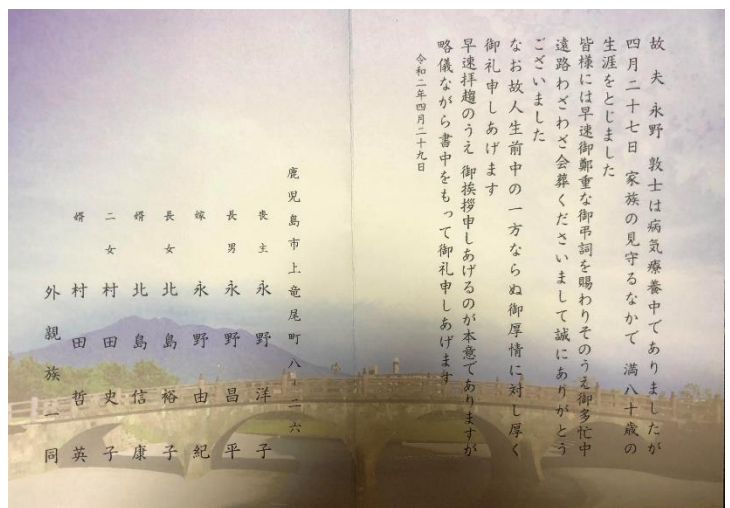 故 夫 永野 敦士は病気療養中でありましたが
四月二十七日 家族の見守るなかで 満八十歳の
生涯をとじました
皆様には早速御鄭重な御弔詞を賜わりそのうえ御多忙中
遠路わざわざ会葬くださいまして誠にありがとう
ございました
なお故人生前中の一方ならぬ御厚情に対し厚く
御礼申しあげます
早速拝趨のうえ 御挨拶申しあげるのが本意でありますが
略儀ながら書中をもって御礼申しあげます
令和二年四月二十九日
鹿児島市上竜尾町八ー二六
喪主 永野洋子
長男 永野昌平
嫁 永野由紀
長女 北島裕子
婿 北島信康
二女 村田史子
婿 村田哲英
外親族一同